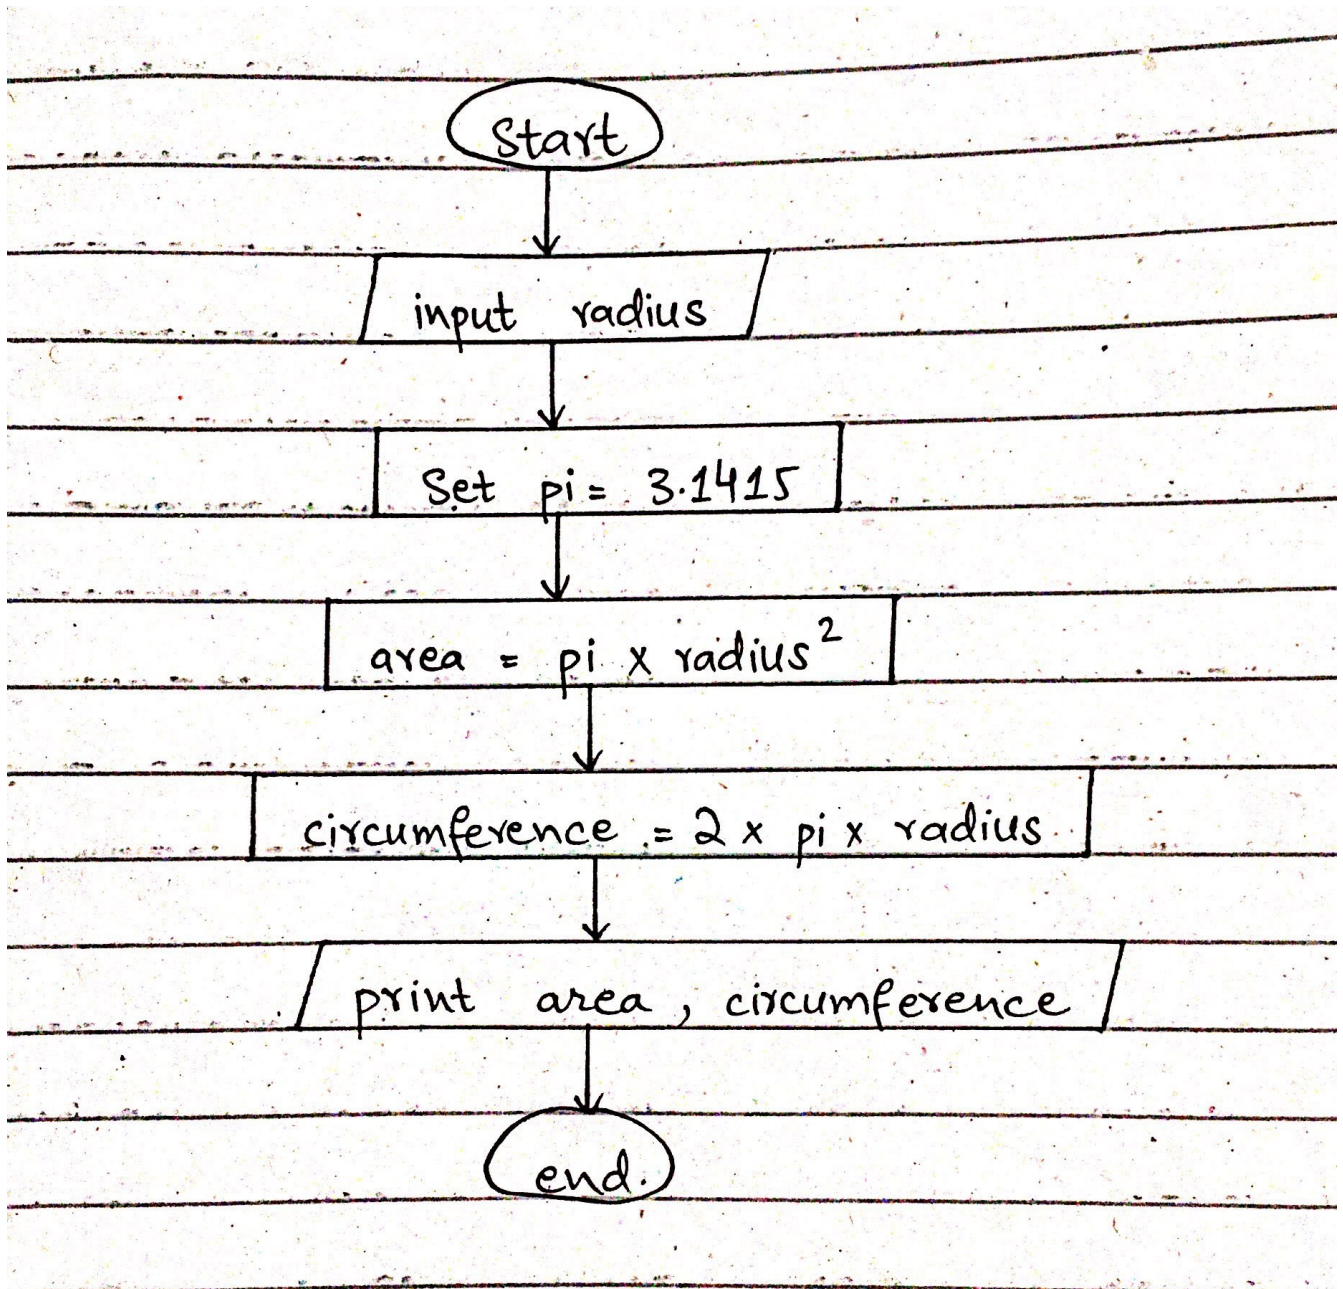 Start
input radius
Set pi = 3.1415
area = pi x radius²
circumference = 2 x pi x radius
print area, circumference
end.